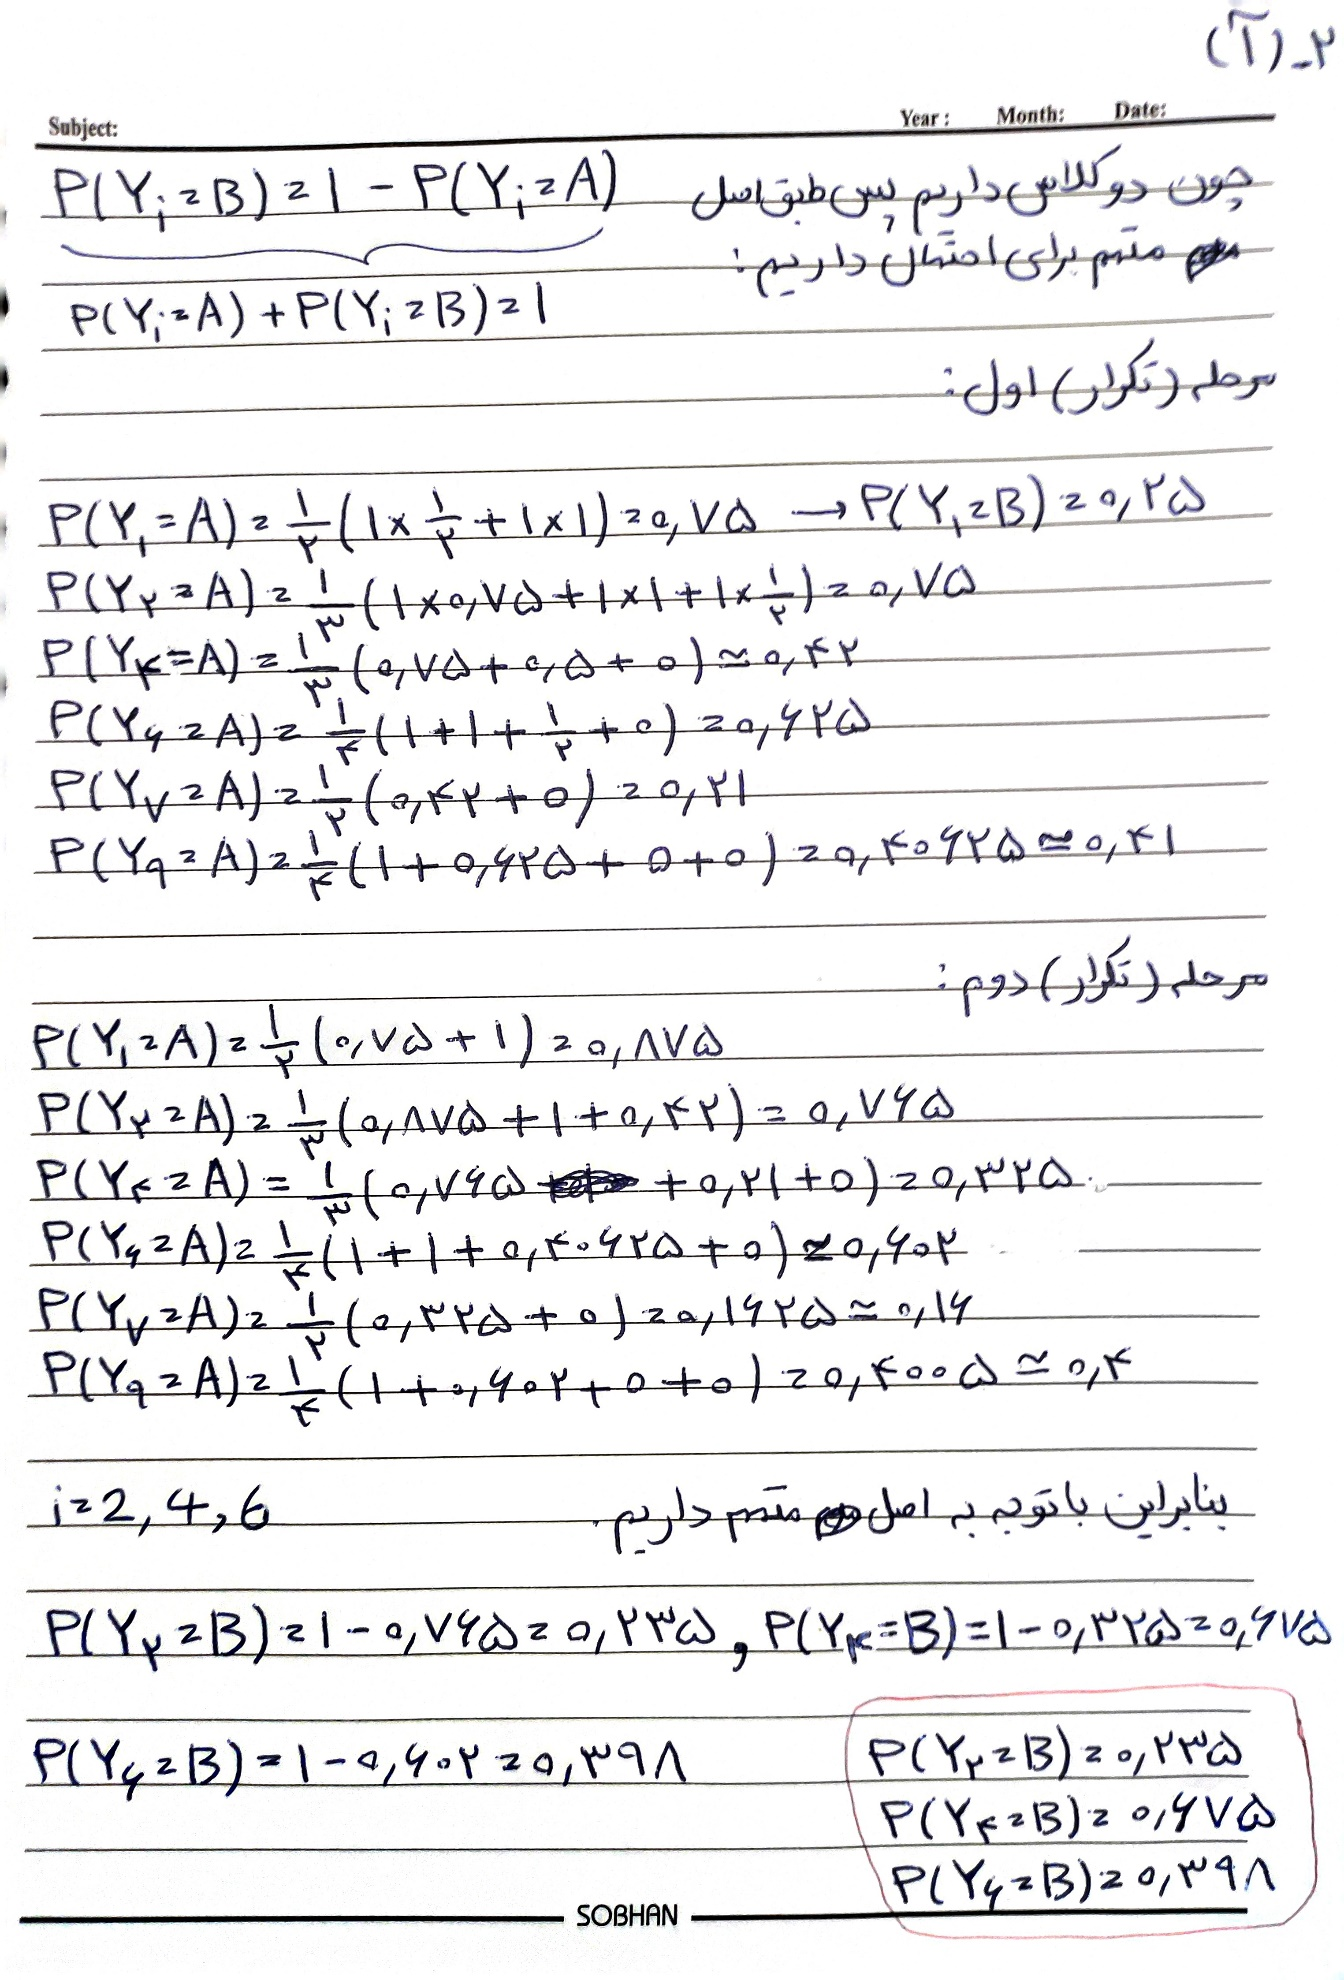 ۲-(آ)
Subject: Year : Month: Date:
چون دو کلاس داریم پس طبق اصل P(Yi=B)=1-P(Yi=A)
متمم برای احتمال داریم:
P(Yi=A)+P(Yi=B)=1
مرحله (تکرار) اول:
P(Y۱=A)=۱/۲(۱×۱/۲+۱×۱)=۰,۷۵ → P(Y۱=B)=۰,۲۵
P(Y۲=A)=۱/۳(۱×۰,۷۵+۱×۱+۱×۱/۲)=۰,۷۵
P(Y۴=A)=۱/۳(۰,۷۵+۰,۵+۰)≃۰,۴۲
P(Y۶=A)=۱/۴(۱+۱+۱/۲+۰)=۰,۶۲۵
P(Y۷=A)=۱/۲(۰,۴۲+۰)=۰,۲۱
P(Y۹=A)=۱/۴(۱+۰,۶۲۵+۰+۰)=۰,۴۰۶۲۵≃۰,۴۱
مرحله (تکرار) دوم:
P(Y۱=A)=۱/۲(۰,۷۵+۱)=۰,۸۷۵
P(Y۲=A)=۱/۳(۰,۸۷۵+۱+۰,۴۲)=۰,۷۶۵
P(Y۴=A)=۱/۳(۰,۷۶۵+۰,۲۱+۰)=۰,۳۲۵
P(Y۶=A)=۱/۴(۱+۱+۰,۴۰۶۲۵+۰)≃۰,۶۰۲
P(Y۷=A)=۱/۲(۰,۳۲۵+۰)=۰,۱۶۲۵≃۰,۱۶
P(Y۹=A)=۱/۴(۱+۰,۶۰۲+۰+۰)=۰,۴۰۰۵≃۰,۴
بنابراین با توجه به اصل متمم داریم. i=2,4,6
P(Y۲=B)=۱-۰,۷۶۵=۰,۲۳۵ , P(Y۴=B)=۱-۰,۳۲۵=۰,۶۷۵
P(Y۶=B)=۱-۰,۶۰۲=۰,۳۹۸
P(Y۲=B)=۰,۲۳۵
P(Y۴=B)=۰,۶۷۵
P(Y۶=B)=۰,۳۹۸
SOBHAN